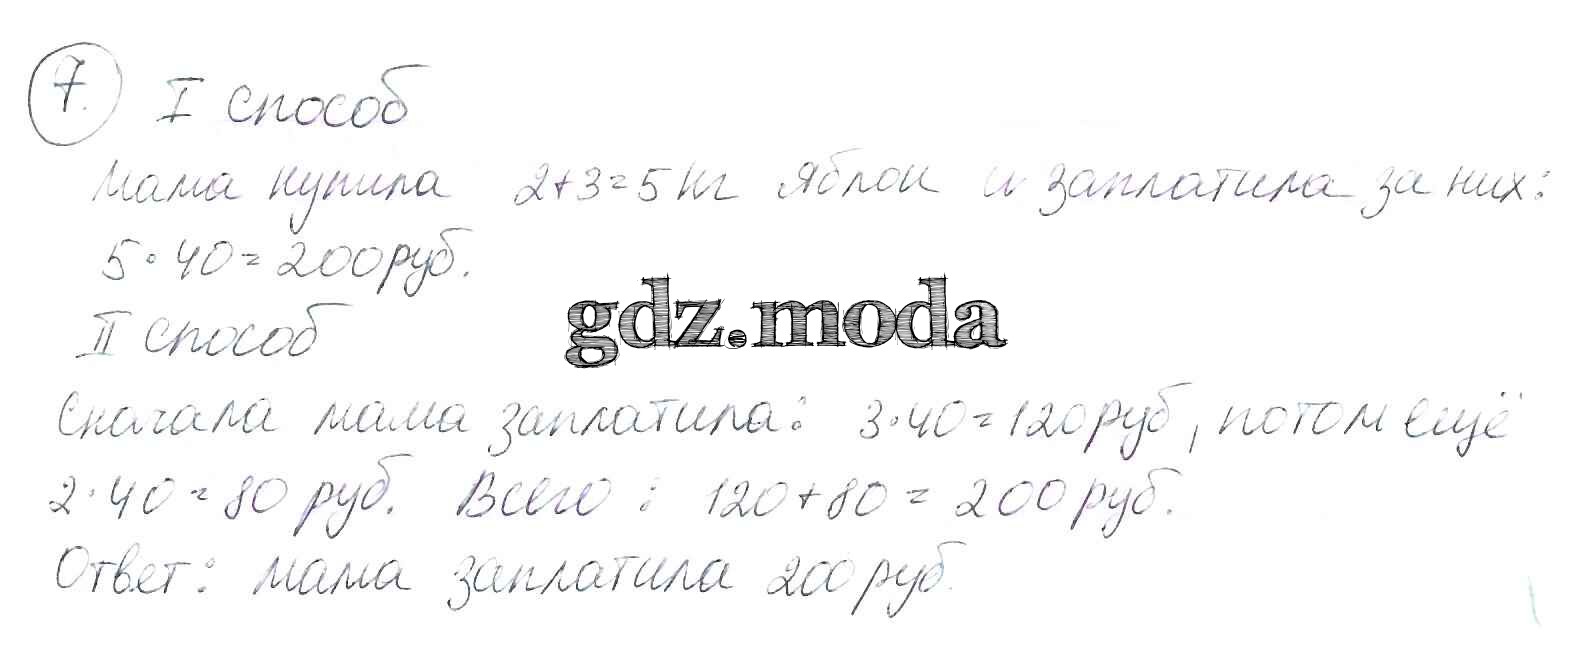 7. I способ
Мама купила 2+3=5 кг яблок и заплатила за них:
5·40=200 руб.
gdz.moda
II способ
Сначала мама заплатила: 3·40=120 руб, потом ещё
2·40=80 руб. Всего: 120+80=200 руб.
Ответ: мама заплатила 200 руб.